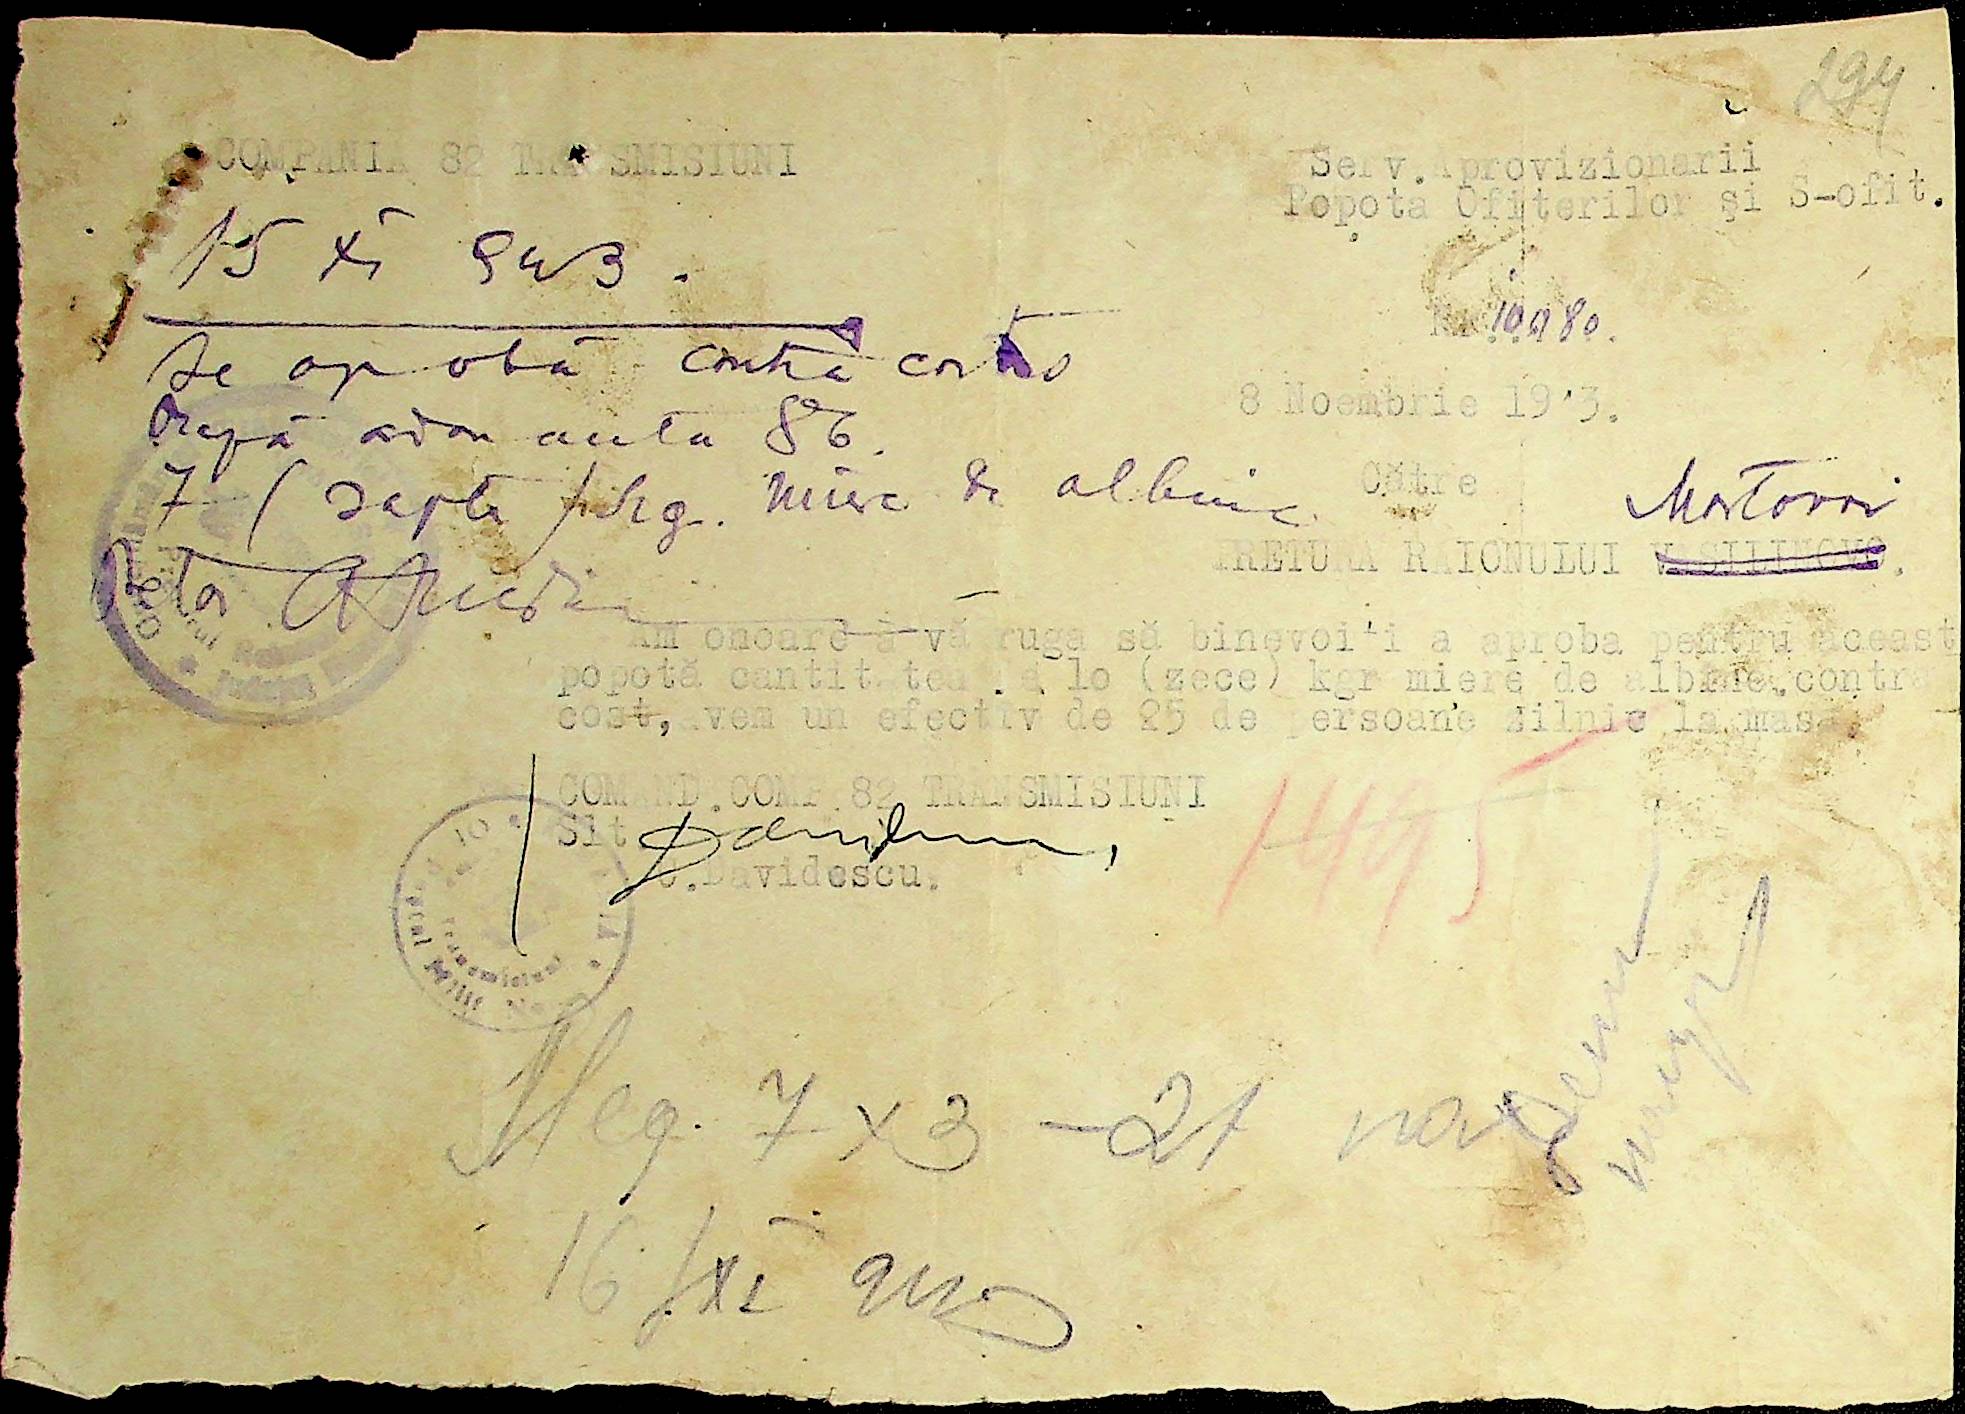 294
COMPANIA 82 TRANSMISIUNI
Serv. Aprovizionarii
Popota Ofiterilor și S-ofit.
15 XI 943.
Nr. 10980.
Se aprobă contra cost
după adon anta 86.
7 (șapte) kg. miere de albine
Pretor
8 Noembrie 1943.
Către
Mostovoi
PRETURA RAIONULUI V.SILINOVO.
Am onoare a vă ruga să binevoiți a aproba pentru aceast
popotă cantitatea de lo (zece) kgr miere de albine, contra
cost, avem un efectiv de 25 de persoane zilnic la masă.
COMAND.COMP.82 TRANSMISIUNI
Slt.
C.Davidescu.
1495
7 x 3 - 21
16/XI 943